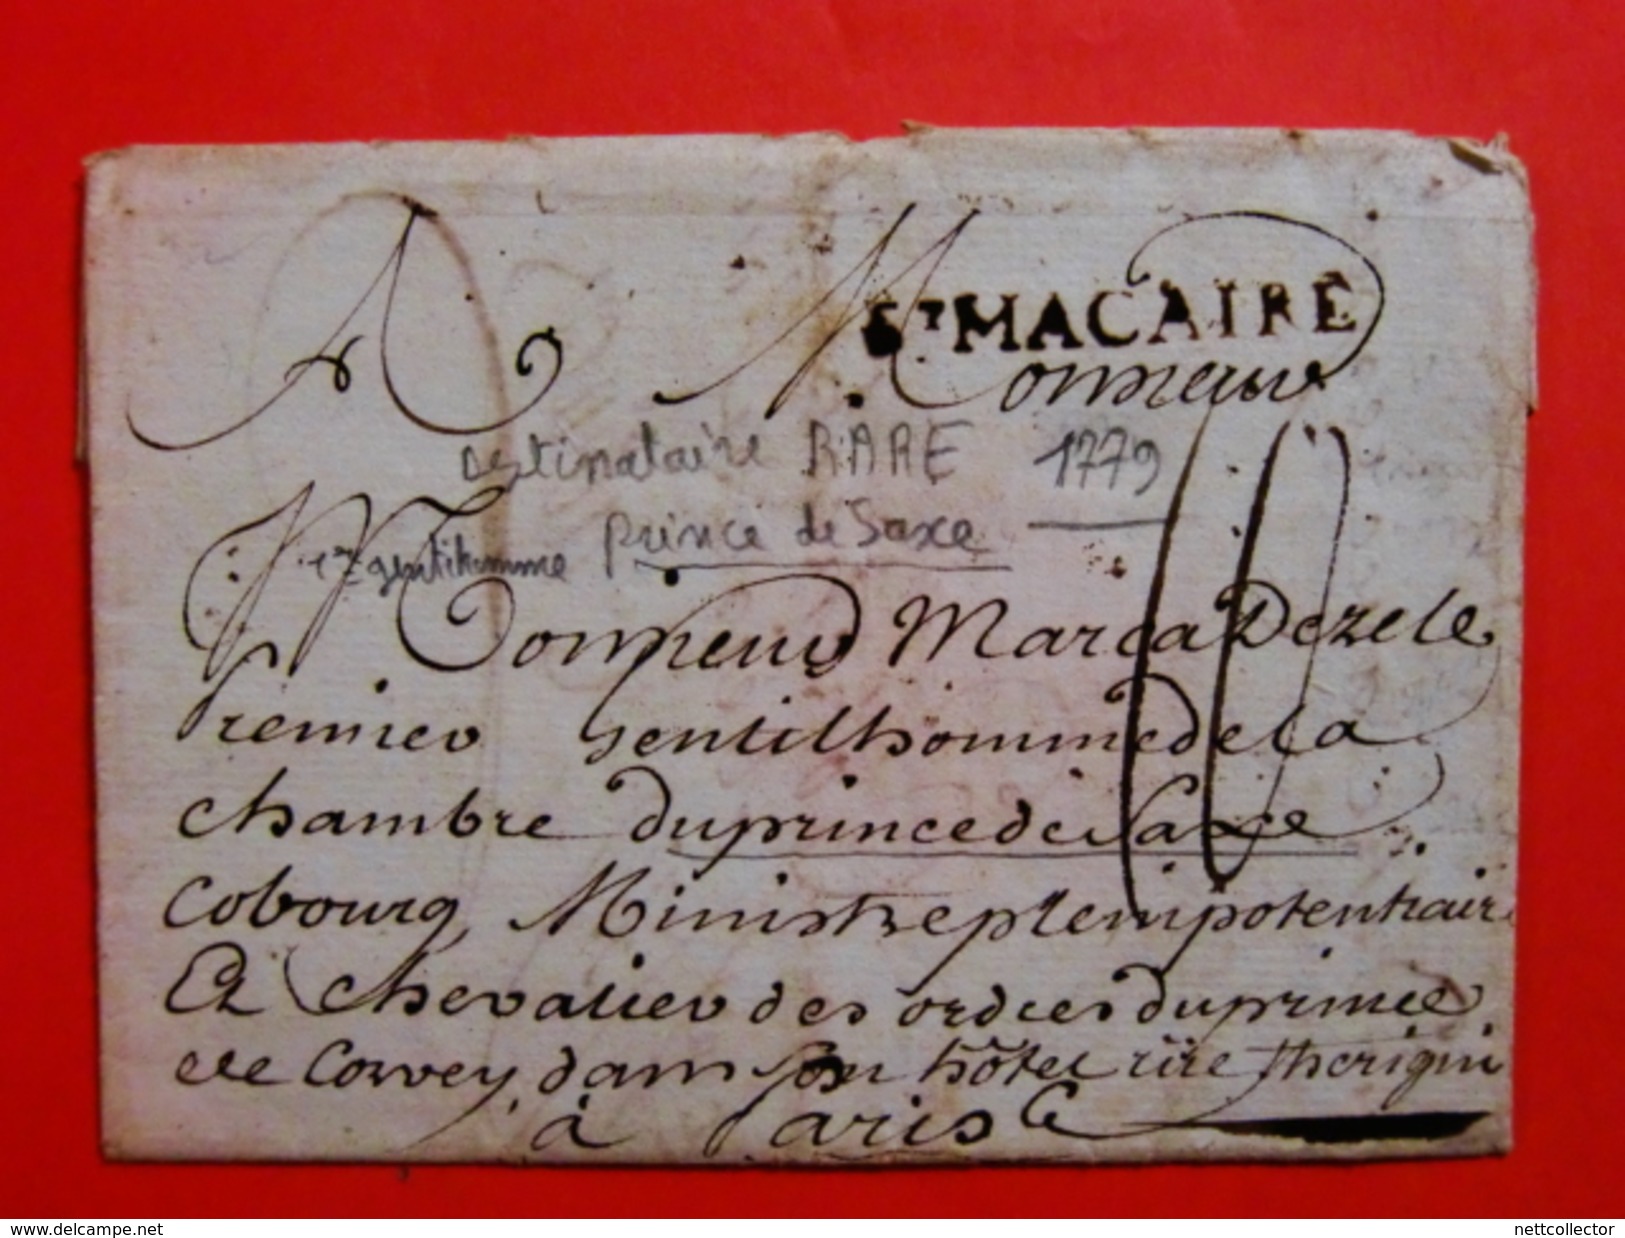 ST MACAIRE
A Monsieur
destinataire RARE 1779
1er gentilhomme prince de Saxe
Monsieur Marca Dezele
premier gentilhomme de la
chambre du prince de Saxe
Cobourg, Ministre plempotentiair
Et chevalier des ordres du prince
de Corvey, dans son hôtel rüe Therigni
à Paris
10
www.delcampe.net
nettcollector